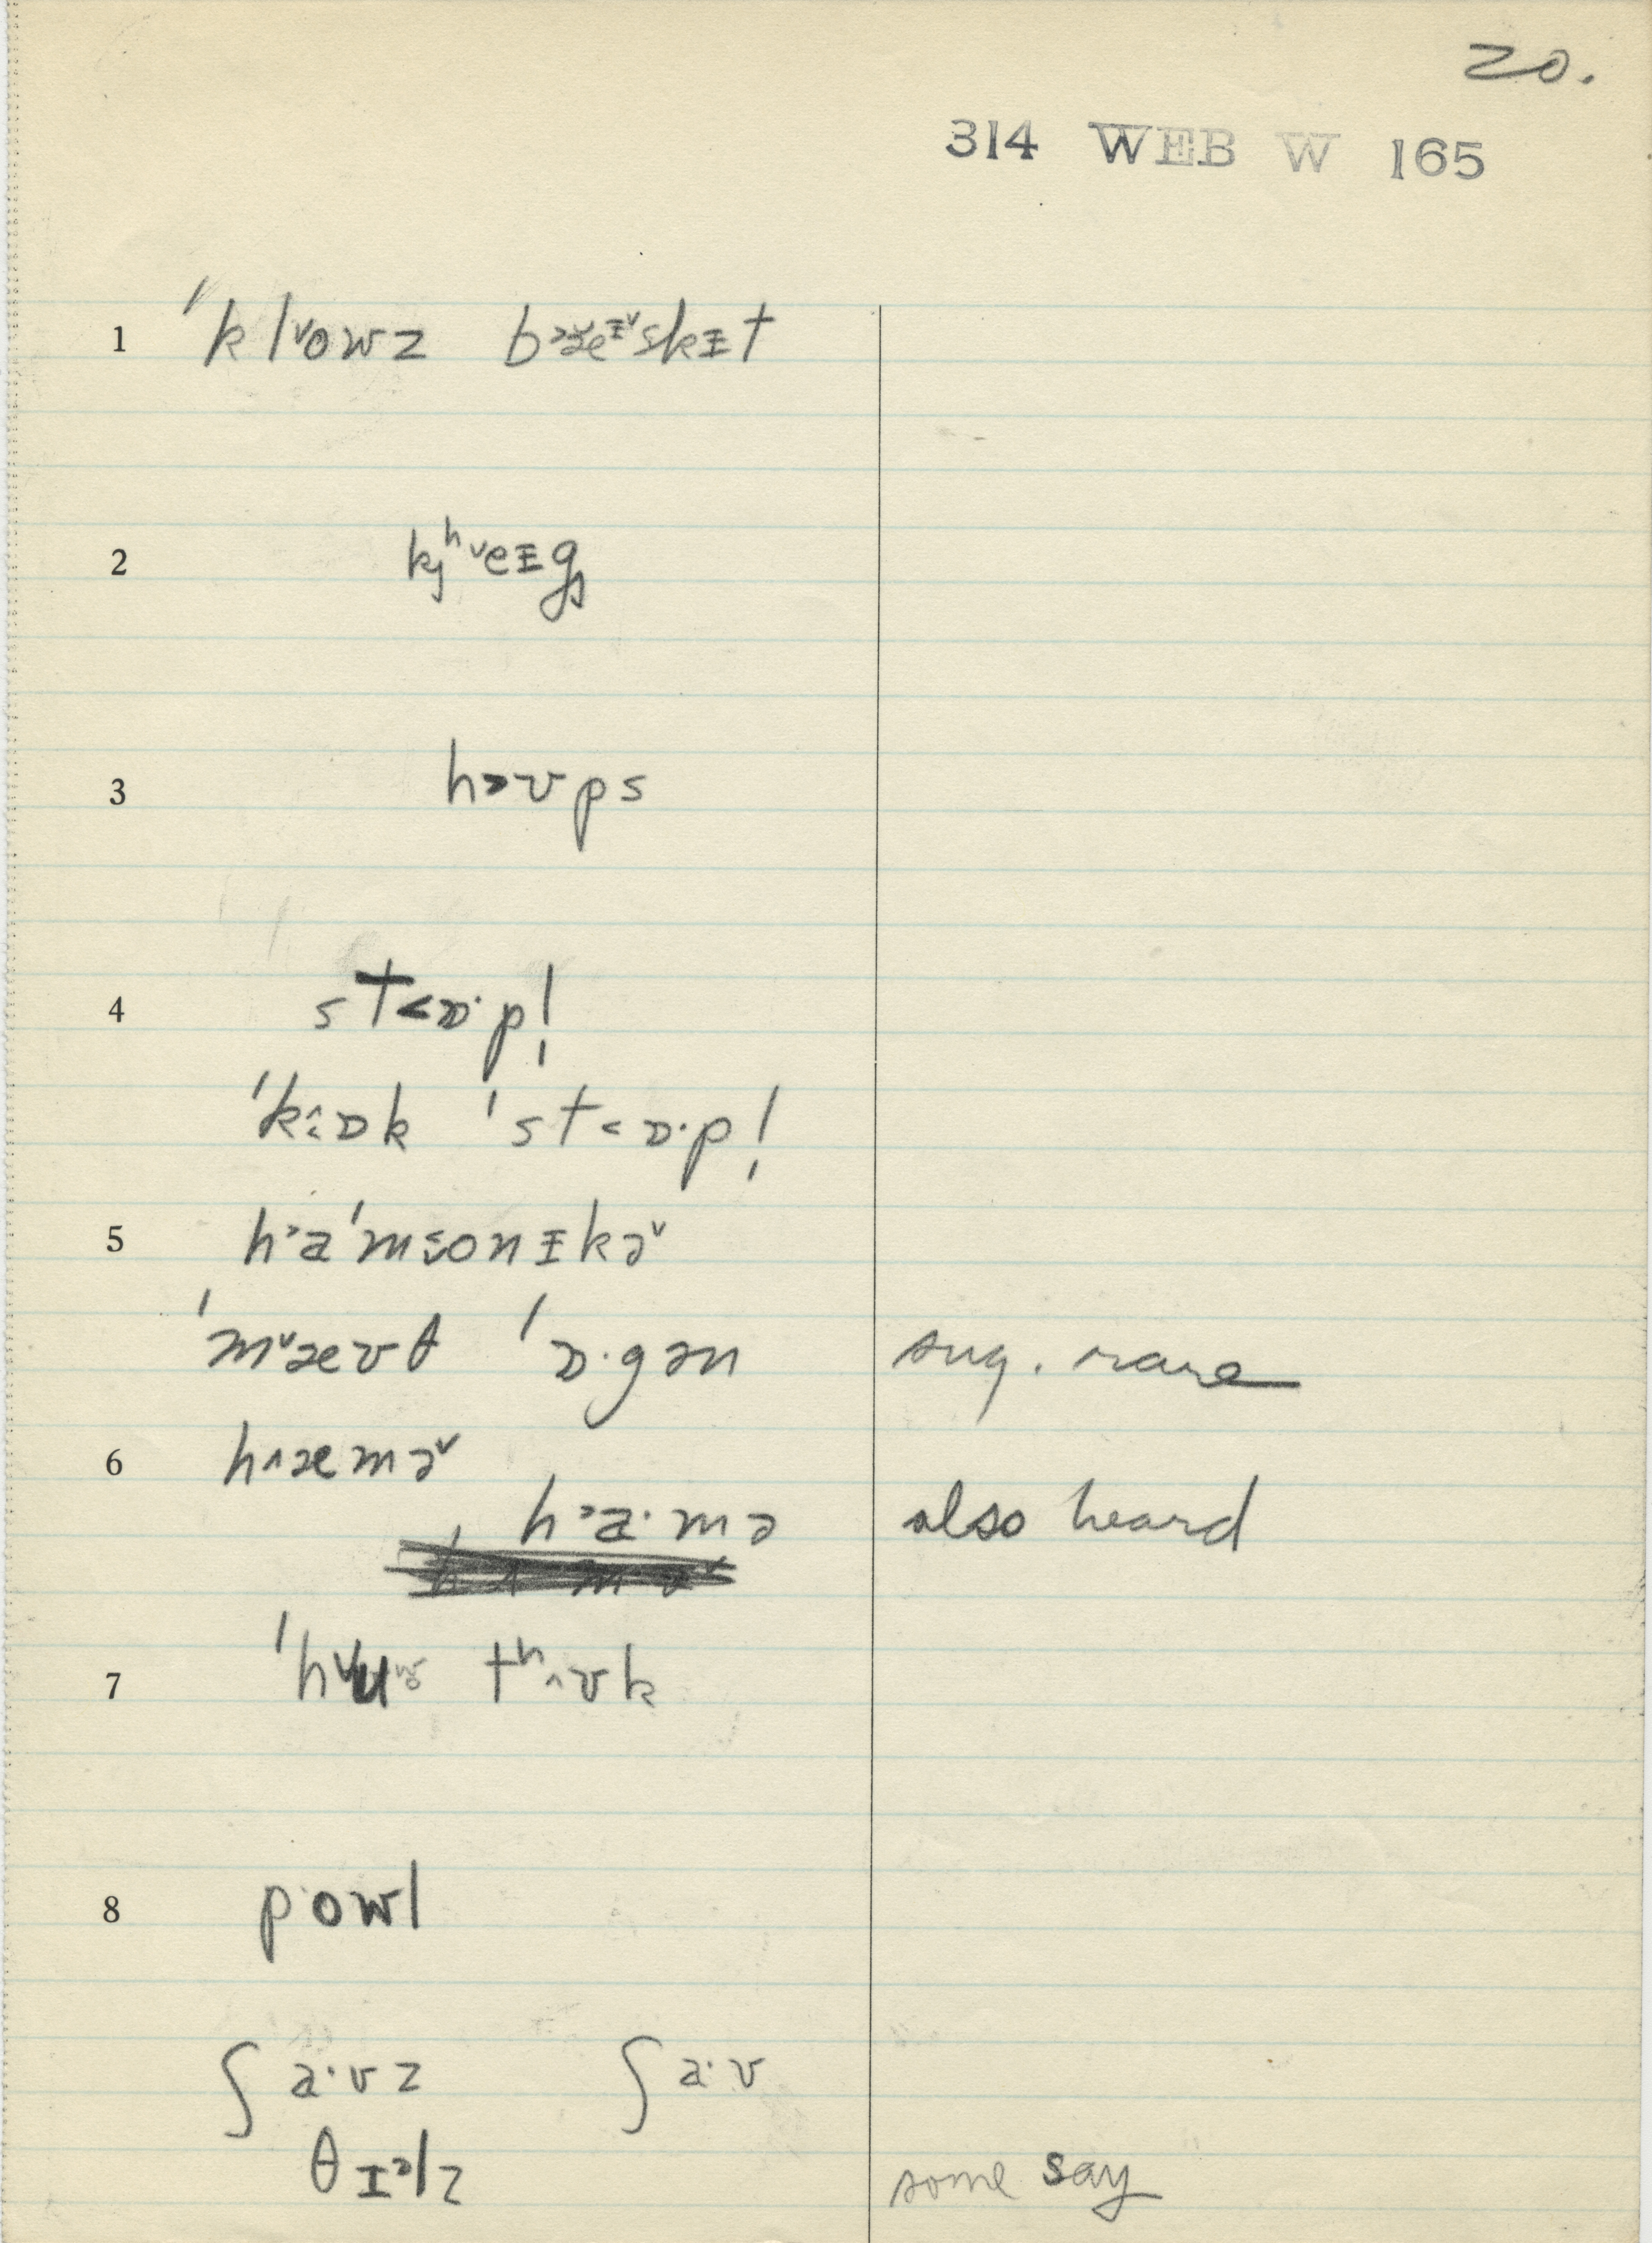 20.
314 WEB W 165
1 ˈkl˅owz b˃æɪ˅skɪt
2 kʰ˅eɪg
3 h˃ʊps
4 st˂ɒ·p!
ˈk ɒk ˈst˂ɒ·p!
5 h˃aˈm onɪkə˅
ˈm˅æʊθ ˈɒ·gən sug. rare
6 h˄æmə˅
h˃a·mə also heard
7 ˈh˅u tʰ˄ʊk
8 p·owl
ʃa·vz ʃa·v
θɪᵊlz some say